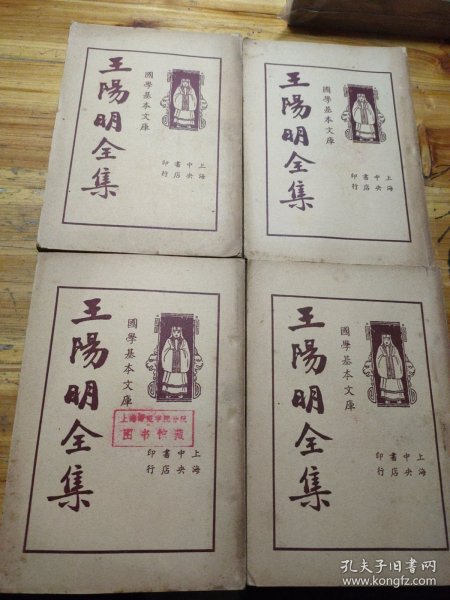 王陽明全集
國學基本文庫
上海
中央
書店
印行
王陽明全集
國學基本文庫
上海
中央
書店
印行
王陽明全集
國學基本文庫
上海
中央
書店
印行
图书馆藏
王陽明全集
國學基本文庫
上海
中央
書店
印行
孔夫子旧书网
www.kongfz.com